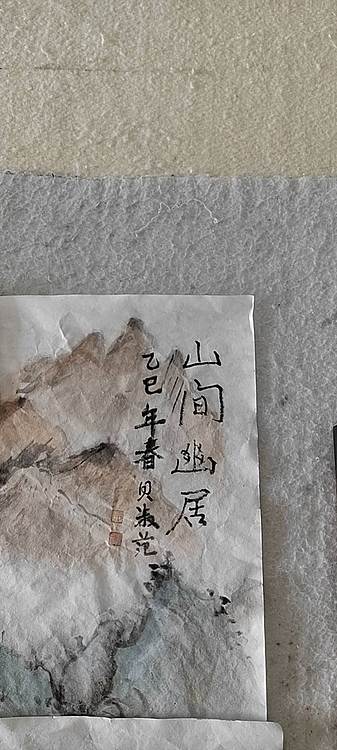 山间幽居
乙巳年春贝淑范